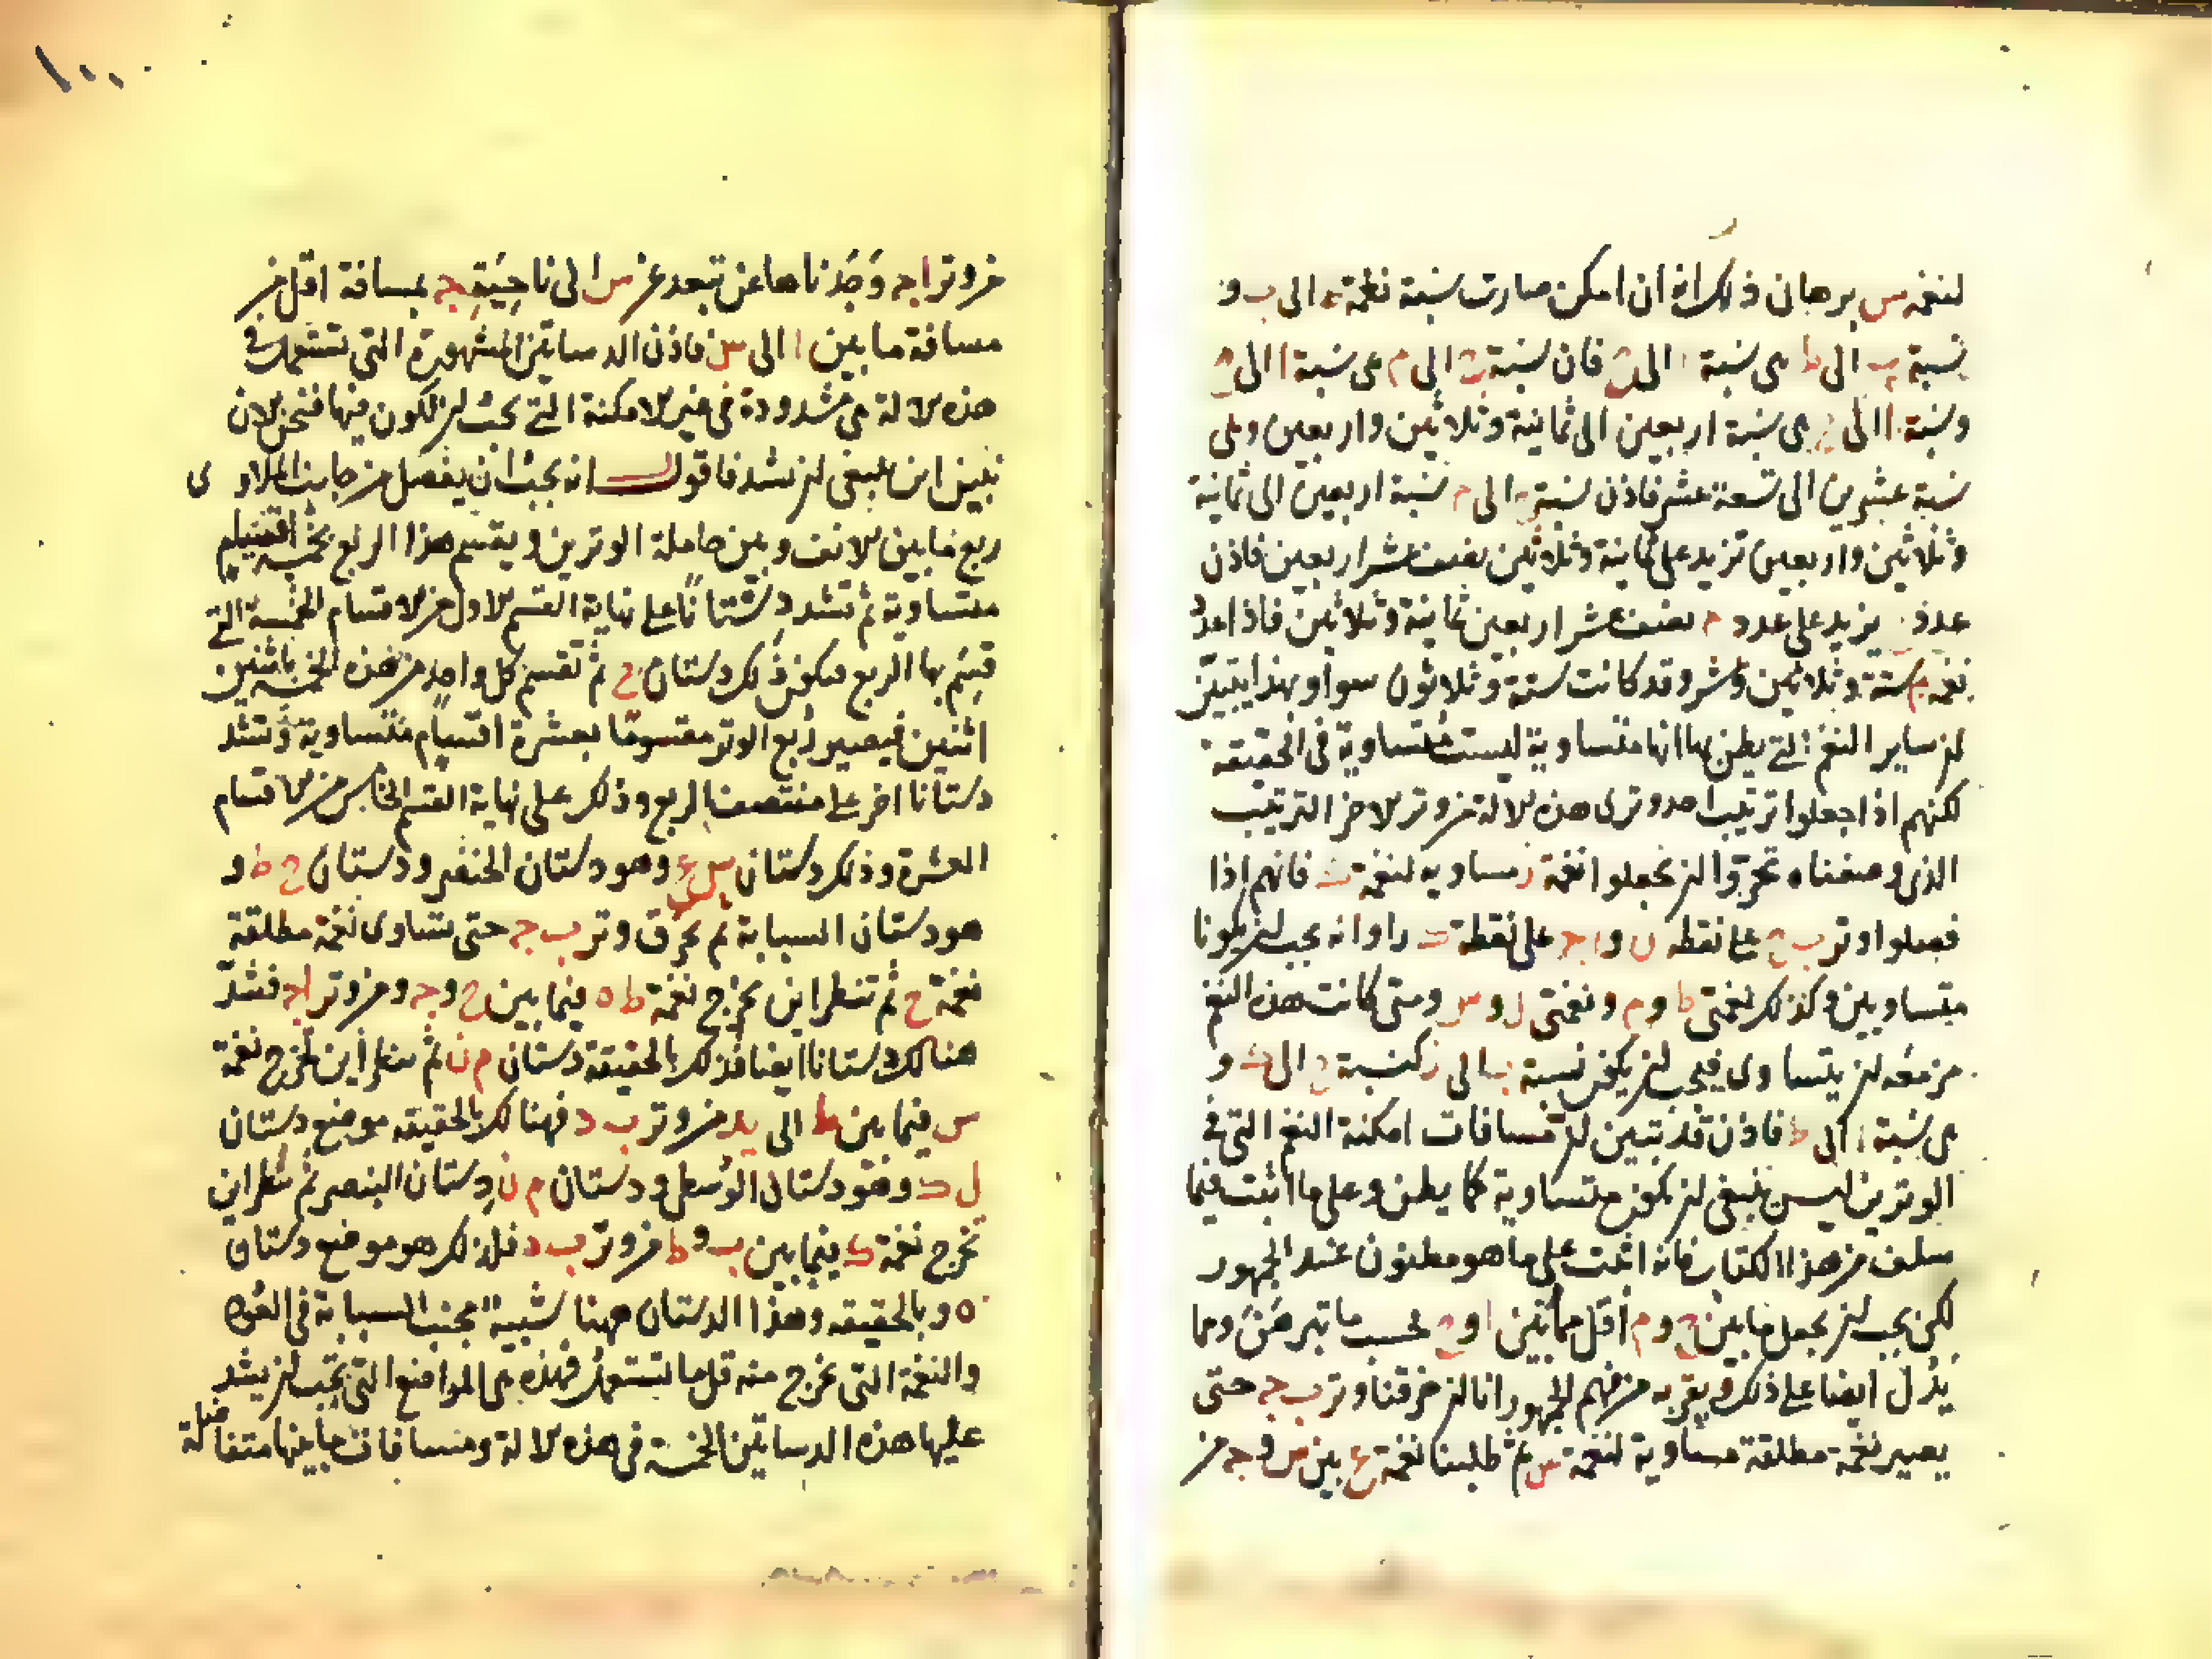 لنغمة س برهان ذلك انه ان امكن صارت نسبة نغمة ء الى ب و
نسبة ب الى ط هى نسبة ا الى فان نسبة الى م هى نسبة ا الى
ونسبة ا الى هى نسبة اربعين الى ثمانية وثلاثين واربعين وهى
نسبة عشرين الى تسعة عشر فاذن نسبة الى م نسبة اربعين الى ثمانية
وثلاثين واربعين تزيد على ثمانية وثلاثين بنصف عشر اربعين فاذن
عدد يزيد على عدد م بنصف عشر اربعين ثمانية وثلاثين فاذا عدد
نغمة م ستة وثلاثين وعشر وقد كانت ستة وثلاثون سواو بهذا يتبين
ان ساير النغم التى يظن بها انها متساوية ليست متساوية فى الحقيقة
لكنهم اذا جعلوا ترتيب احد وترى هذه الالة من وتر الاخر الترتيب
الذى وصفناه تحروا ان يجعلوا نغمة ز مساويه لنغمة فانهم اذا
فعلوا وتر ب على نقطه ن و ا ج على نقطة راوا انه يجب ان يكونا
متساويين وكذلك نغمتى ط و م ونغمتى ل و س ومتى كانت هذه النغم
مزمعه ان يتساوى فيجب ان يكون نسبة ب الى ز كنسبة الى و
هى نسبة ا الى ط فاذن قد تبين ان مسافات امكنة النغم التى فى
الوترين ليس ينبغى ان تكون متساوية كما يظن وعلى ما اثبت فيما
سلف من هذا الكتاب فانه اثبت على ما هو مظنون عند الجمهور
لكن يجب ان يجعل ما بين ح و م اقل مما بين ا و ح بحسب ما تبرهن ومما
يدل ايضا على ذلك ويقربه من فهم الجمهور انا ان حزقنا وتر ب ج حتى
يصير نغمة مطلقة مساوية لنغمة س ثم طلبنا نغمة ع بين س و ج من
من وتر ا ج وجدناها عن تبعد عن س الى ناحية ج بمسافة اقل من
مسافة ما بين ا الى س فاذن الدساتين المشهورة التى تستعمل فى
هذه الالة هى مشدودة فى غير الامكنة التى يجب ان تكون فيها فنحن الان
نبين اين ينبغى ان تشد فاقول انه يجب ان يفصل من جانب الملاوى
ربع ما بين الانف وبين حاملة الوترين ويقسم هذا الربع بخمسة اقسام
متساوية ثم تشد دستانا على نهاية القسم الاول من الاقسام الخمسة التى
قسم بها الربع فيكون ذلك دستان ح ثم تقسم كل واحد من هذه الخمسة باثنين
اثنين فيصير ربع الوتر مقسوما بعشرة اقسام متساوية وتشد
دستانا اخر على منتصف الربع وذلك على نهاية القسم الخامس من الاقسام
العشرة وذلك دستان س ع وهو دستان الخنصر ودستان ح ط و
هو دستان السبابة ثم يحزق وتر ب ج حتى تساوى نغمة مطلقة
نغمة ح ثم تنظر اين يخرج نغمة ط ه فيما بين ح و ج ومن وتر ا ج فشد
هنالك دستانا ايضا فذلك بالحقيقة دستان م ن ثم تنظر اين تخرج نغمة
س فيما بين ط الى يد من وتر ب د فهنالك بالحقيقه موضع دستان
ل ك وهو دستان الوسطى ودستان م ن دستان البنصر ثم تنظر اين
تخرج نغمة ك فيما بين ب و ط من وتر ب د فلذلك هو موضع دستان
ه و بالحقيقه وهذا الدستان ههنا شبيه بمجنب السبابة فى العود
والنغمة التى تخرج منه قل ما تستعمل فهذه هى المواضع التى يجب ان يشد
عليها هذه الدساتين الخمسة فى هذه الالة ومسافات ما بينها متفاضلة